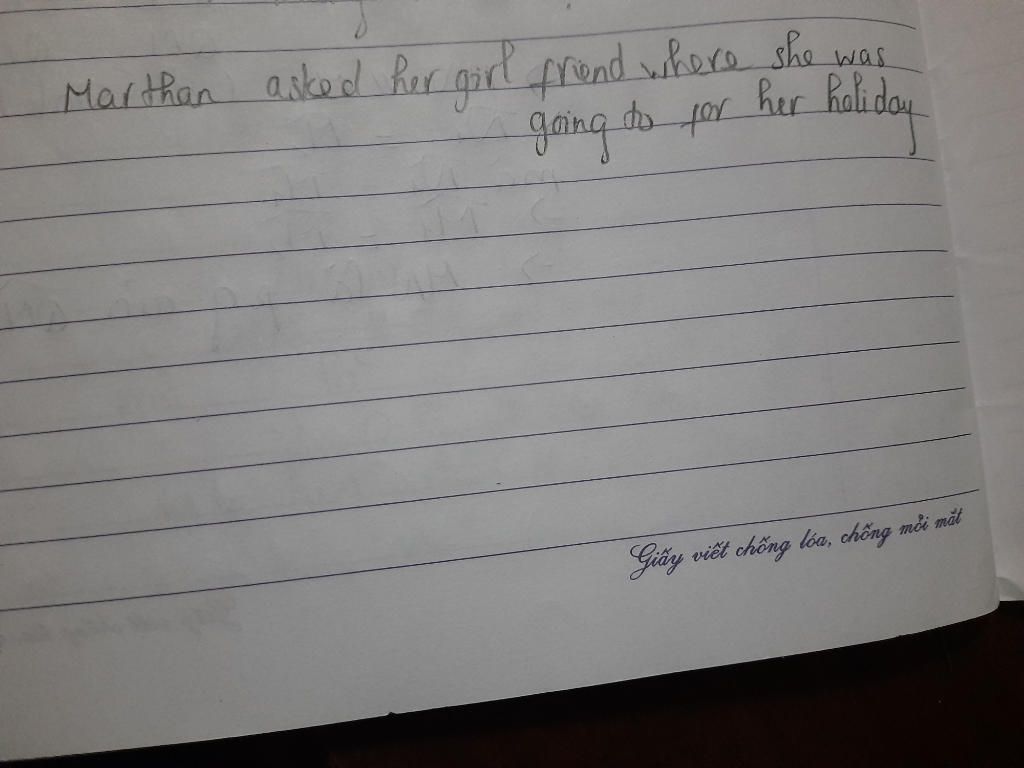 Marthan asked her girl friend where she was
going to for her holiday
Giấy viết chống lóa, chống mỏi mắt